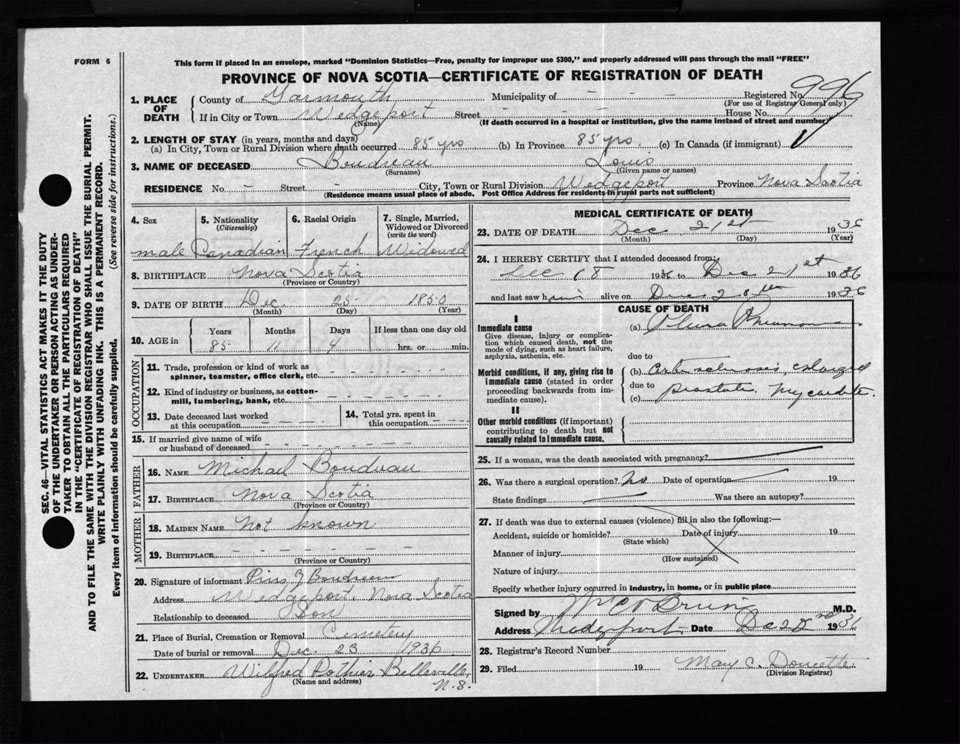 FORM 6
This form if placed in an envelope, marked "Dominion Statistics—Free, penalty for improper use $300," and properly addressed will pass through the mail "FREE"
PROVINCE OF NOVA SCOTIA—CERTIFICATE OF REGISTRATION OF DEATH
996
1. PLACE OF DEATH
County of Yarmouth Municipality of - - - Registered No.
(For use of Registrar General only)
If in City or Town Wedgeport Street - - House No.
(Name) (If death occurred in a hospital or institution, give the name instead of street and number)
2. LENGTH OF STAY (in years, months and days)
(a) In City, Town or Rural Division where death occurred 85 yrs (b) In Province 85 yrs. (c) In Canada (if immigrant)
3. NAME OF DECEASED Boudreau Louis
(Surname) (Given name or names)
RESIDENCE No. - Street - City, Town or Rural Division Wedgeport Province Nova Scotia
(Residence means usual place of abode. Post Office Address for residents in rural parts not sufficient)
SEC. 46—VITAL STATISTICS ACT MAKES IT THE DUTY
OF THE UNDERTAKER OR PERSON ACTING AS UNDER-
TAKER TO OBTAIN ALL THE PARTICULARS REQUIRED
IN THE "CERTIFICATE OF REGISTRATION OF DEATH"
AND TO FILE THE SAME WITH THE DIVISION REGISTRAR WHO SHALL ISSUE THE BURIAL PERMIT.
WRITE PLAINLY WITH UNFADING INK. THIS IS A PERMANENT RECORD.
Every item of information should be carefully supplied. (See reverse side for instructions.)
4. Sex
male
5. Nationality
(Citizenship)
Canadian
6. Racial Origin
French
7. Single, Married,
Widowed or Divorced
(write the word)
Widowed
8. BIRTHPLACE Nova Scotia
(Province or Country)
9. DATE OF BIRTH Dec. 25 1850
(Month) (Day) (Year)
10. AGE in
Years Months Days If less than one day old
85 11 hrs. or min.
OCCUPATION
11. Trade, profession or kind of work as
spinner, teamster, office clerk, etc.
12. Kind of industry or business, as cotton-
mill, lumbering, bank, etc.
13. Date deceased last worked
at this occupation
14. Total yrs. spent in
this occupation
15. If married give name of wife
or husband of deceased
FATHER
16. NAME Michael Boudreau
17. BIRTHPLACE Nova Scotia
(Province or Country)
MOTHER
18. MAIDEN NAME Not known
19. BIRTHPLACE
(Province or Country)
20. Signature of informant Pius J Boudreau
Address Wedgeport, Nova Scotia
Relationship to deceased Son
21. Place of Burial, Cremation or Removal Cemetery
Date of burial or removal Dec. 23 1936
22. UNDERTAKER Wilfred Pothier Belleville,
N.S.
(Name and address)
MEDICAL CERTIFICATE OF DEATH
23. DATE OF DEATH Dec 21st 1936
(Month) (Day) (Year)
24. I HEREBY CERTIFY that I attended deceased from:
Dec 18 1936 to Dec 21st 1936
and last saw him alive on Dec 20th 1936
CAUSE OF DEATH
I
Immediate cause
Give disease, injury or complica-
tion which caused death, not the
mode of dying, such as heart failure,
asphyxia, asthenia, etc.
(a) Pneumonia
due to
Morbid conditions, if any, giving rise to
immediate cause (stated in order
proceeding backwards from im-
mediate cause).
(b) Arteriosclerosis, enlarged
due to
(c) prostate, Myocarditis.
II
Other morbid conditions (if important)
contributing to death but not
causally related to immediate cause.
25. If a woman, was the death associated with pregnancy?
26. Was there a surgical operation? No Date of operation 19
State findings Was there an autopsy?
27. If death was due to external causes (violence) fill in also the following:—
Accident, suicide or homicide? Date of injury 19
(State which)
Manner of injury
(How sustained)
Nature of injury
Specify whether injury occurred in industry, in home, or in public place
Signed by M.D.
Address Wedgeport Date Dec 1936
28. Registrar's Record Number
29. Filed 19 Mary C. Doucette
(Division Registrar)